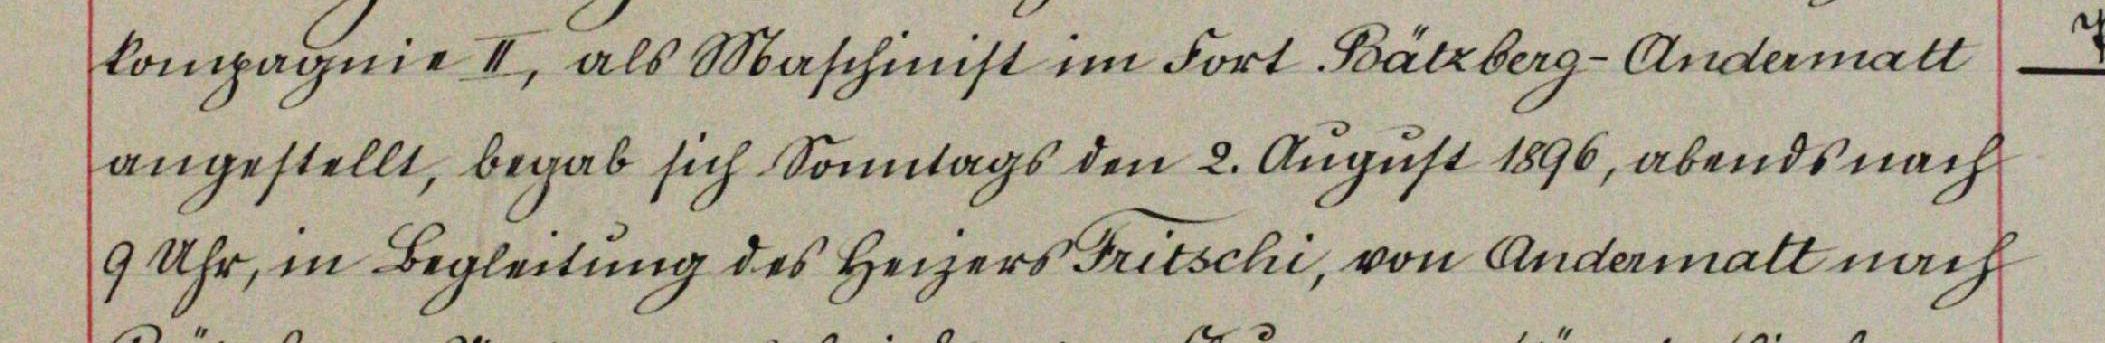 kompagnie II, als Maschinist im Fort Bätzberg-Andermatt
angestellt, begab sich Sonntags den 2. August 1896, abends nach
9 Uhr, in Begleitung des Heizers Fritschi, von Andermatt nach